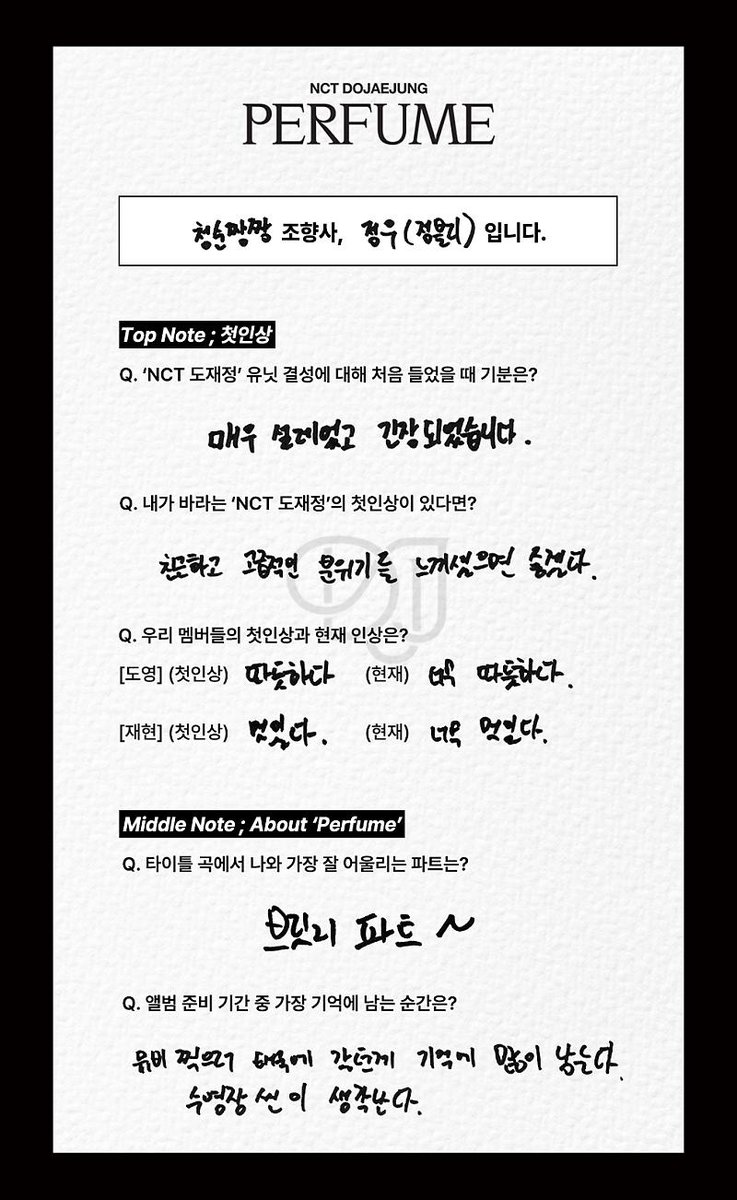 NCT DOJAEJUNG
PERFUME
청순짱짱 조향사, 정우(점블리) 입니다.
Top Note ; 첫인상
Q. ‘NCT 도재정’ 유닛 결성에 대해 처음 들었을 때 기분은?
매우 설레었고 긴장되었습니다.
Q. 내가 바라는 ‘NCT 도재정’의 첫인상이 있다면?
친근하고 고급적인 분위기를 느끼셨으면 좋겠다.
Q. 우리 멤버들의 첫인상과 현재 인상은?
[도영] (첫인상) 따듯하다 (현재) 더욱 따듯하다.
[재현] (첫인상) 멋있다. (현재) 너무 멋있다.
Middle Note ; About ‘Perfume’
Q. 타이틀 곡에서 나와 가장 잘 어울리는 파트는?
브릿지 파트 ~
Q. 앨범 준비 기간 중 가장 기억에 남는 순간은?
뮤비 찍으러 태국에 갔던게 기억에 많이 남는다.
수영장 씬이 생각난다.